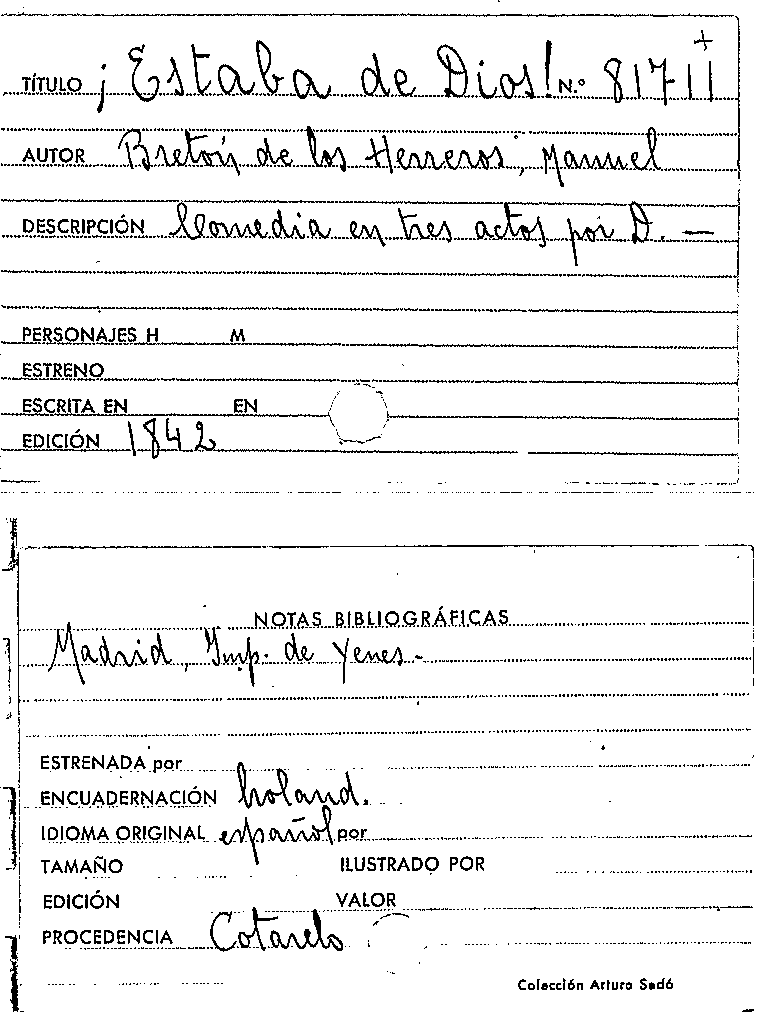 +
TÍTULO ¡Estaba de Dios! N.º 81711
AUTOR Bretón de los Herreros, Manuel
DESCRIPCIÓN Comedia en tres actos por D. —
PERSONAJES H M
ESTRENO
ESCRITA EN EN
EDICIÓN 1842
NOTAS BIBLIOGRÁFICAS
Madrid, Imp. de Yenes.-
ESTRENADA por
ENCUADERNACIÓN holand.
IDIOMA ORIGINAL español por
TAMAÑO ILUSTRADO POR
EDICIÓN VALOR
PROCEDENCIA Cotarelo
Colección Arturo Sedó